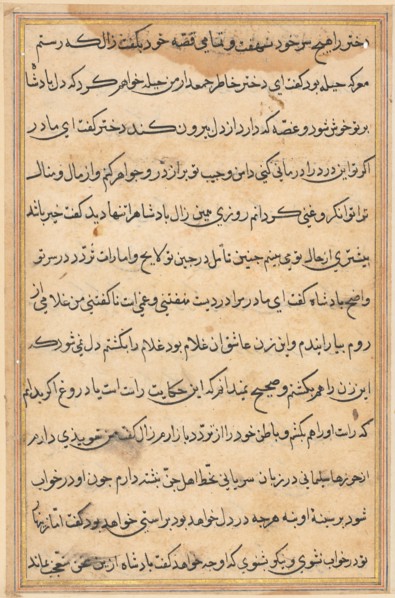 دختر را هیچ سر خود نهفت و تمامی قصه خود بگفت زال که رستم
معرکه حیله بود گفت ای دختر خاطر جمعدار من حیله خواهم کرد که دل پادشاه
بر تو خوش شود و غصه که دارد از دل بیرون کند دختر گفت ای مادر
اگر تو این درد را درمانی کنی دامن و جیب تو پر از زر و جواهر کنم و از مال و منال
ترا توانگر و غنی گردانم روزی همین زال پادشاه را تنها دید گفت خیر باشد
پیشتری از حال تو می بینم چنین تامل در جبین تو لایح و امارات تردد در سر تو
واضح پادشاه گفت ای مادر مرا دردیست نهفتنی و غمی است ناگفتنی من غلامی از
روم بیاراندم و این زن عاشق آن غلام بود غلام را بکشتم دل نمی شود که
این زن را هم بکشم و صحیح نمیدانم که این حکایت راست است یا دروغ اگر بدانم
که راست او را هم بکشم و باطن خود را از تردد باز آرم زال گفت من تعویذی دارم
از حرزهای سلیمانی در زبان سریانی بخط اهل جن نبشته دارم چون او در خواب
شود بر سینه او بنه هرچه در دل خواهد بود براستی خواهد بود گفت اما زنهار
تو در خواب نشوی و نیکو بشنوی که او چه خواهد گفت پادشاه ازین سخن متعجب بماند